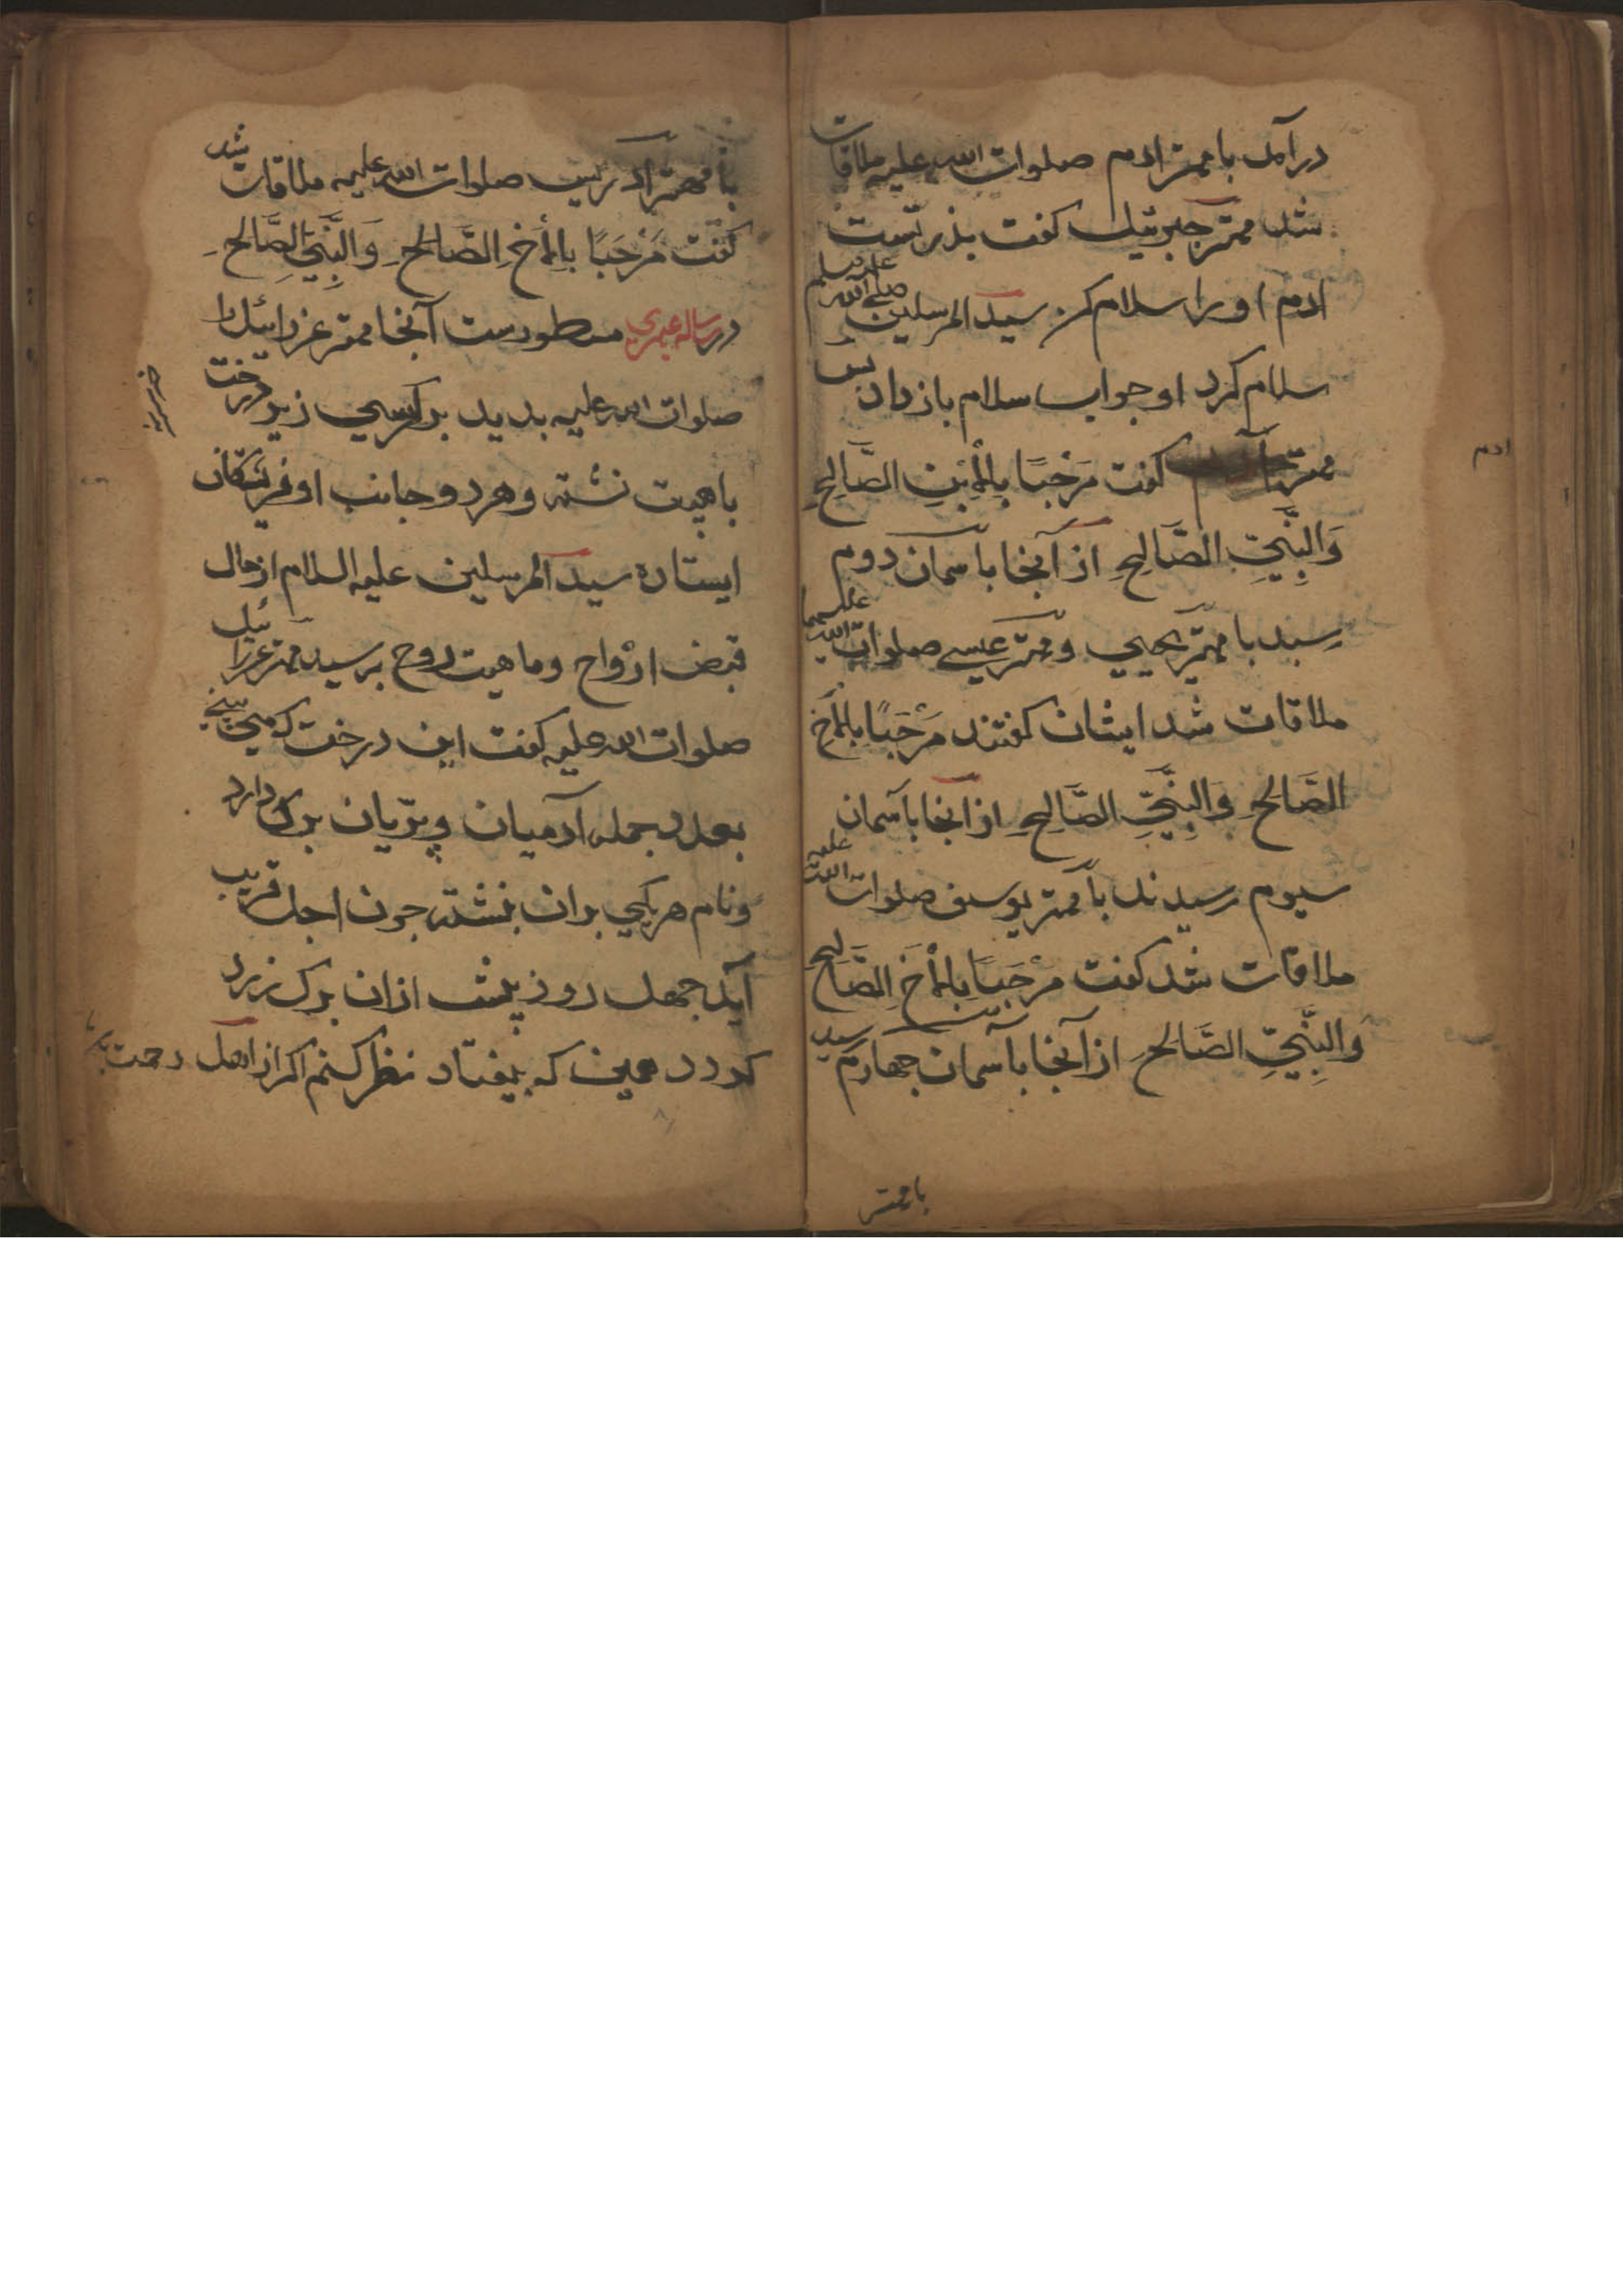 درآمد با مهتر ادم صلوات الله علیه ملاقات
شد مهتر جبرئیل کفت پذر تست
ادم او را سلام کن سید المرسلین صلی الله علیه وسلم
سلام کرد او جواب سلام باز داد پس
مهتر کفت مَرْحَبًا بِالْاِبْنِ الصَّالِحِ
ادم
وَالنَّبِیِّ الصَّالِحِ از آنجا باسمان دوم
رسید با مهتر یحیی و مهتر عیسی صلوات الله علیهما
ملاقات شد ایشان کفتند مَرْحَبًا بِالْاَخِ
الصَّالِحِ وَالنَّبِیِّ الصَّالِحِ از آنجا باسمان
سیوم رسیدند با مهتر یوسف صلوات الله علیه
ملاقات شد کفت مَرْحَبًا بِالْاَخِ الصَّالِحِ
وَالنَّبِیِّ الصَّالِحِ از آنجا بآسمان جهارم رسید
با مهتر
با مهتر ادریس صلوات الله علیه ملاقات شد
کفت مَرْحَبًا بِالْاَخِ الصَّالِحِ وَالنَّبِیِّ الصَّالِحِ
در رساله مسطورست آنجا مهتر عزرائیل را
صلوات الله علیه بدید بر کرسی زیر درخت
با هیبت نشسته و هر دو جانب او فریشتکان
ایستاده سید المرسلین علیه السلام از حال
قبض ارْواح و ماهیت روح پرسید مهتر عزرائیل
صلوات الله علیه کفت این درخت که می بینی
بعدد جمله آدمیان و پریان برک دارد
و نام هر یکی بران نبشته جون اجل قریب
آید جهل روز پیش ازان برک زرد
کردد همین که بیفتاد نظر کنم اکر از اهل رحمت